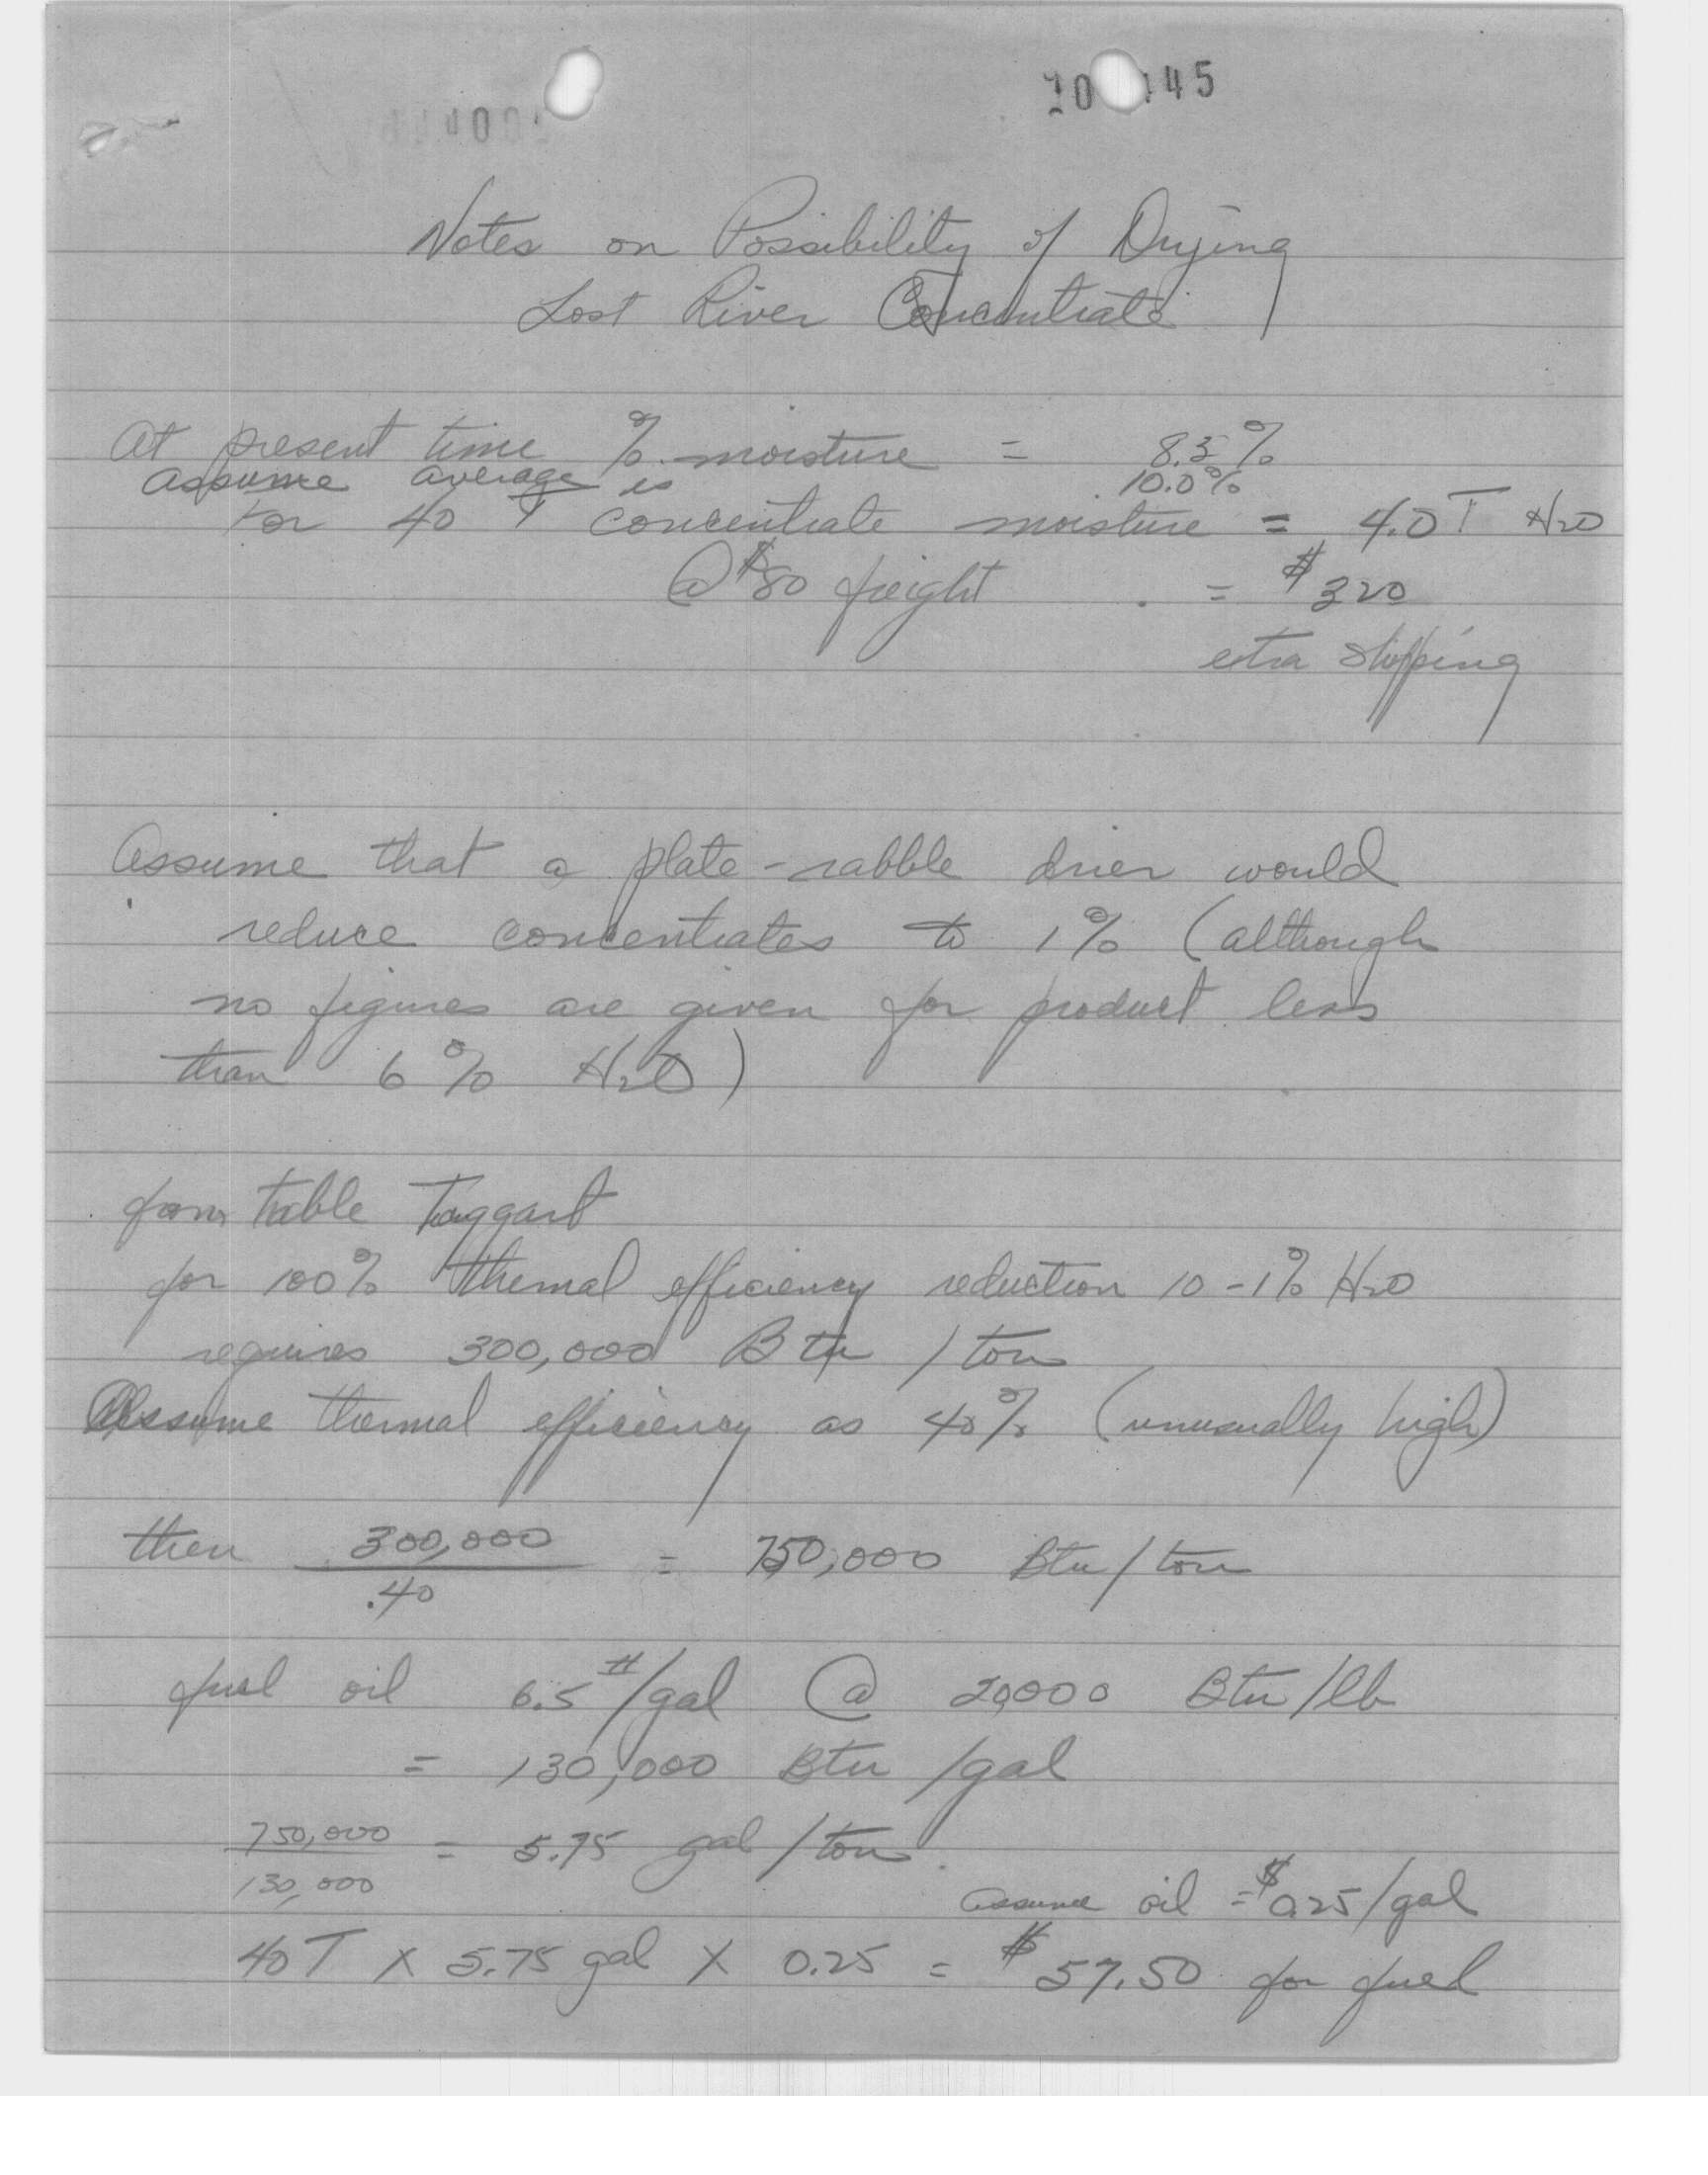 20 145
Notes on Possibility of Drying
Lost River Concentrate
At present time % moisture = 8.3 %
assume average is 10.0%
For 40 T concentrate moisture = 4.0 T H2O
@ $80 freight = $320
extra shipping
Assume that a plate-rabble drier would
reduce concentrates to 1% (although
no figures are given for product less
than 6% H2O)
from table Taggart
for 100% thermal efficiency reduction 10-1% H2O
requires 300,000 Btu / ton
Assume thermal efficiency as 40% (unusually high)
then 300,000 / .40 = 750,000 Btu/ton
fuel oil 6.5 #/gal @ 20,000 Btu/lb
= 130,000 Btu /gal
750,000 / 130,000 = 5.75 gal/ton
assume oil = $0.25/gal
40 T X 5.75 gal X 0.25 = $57.50 for fuel